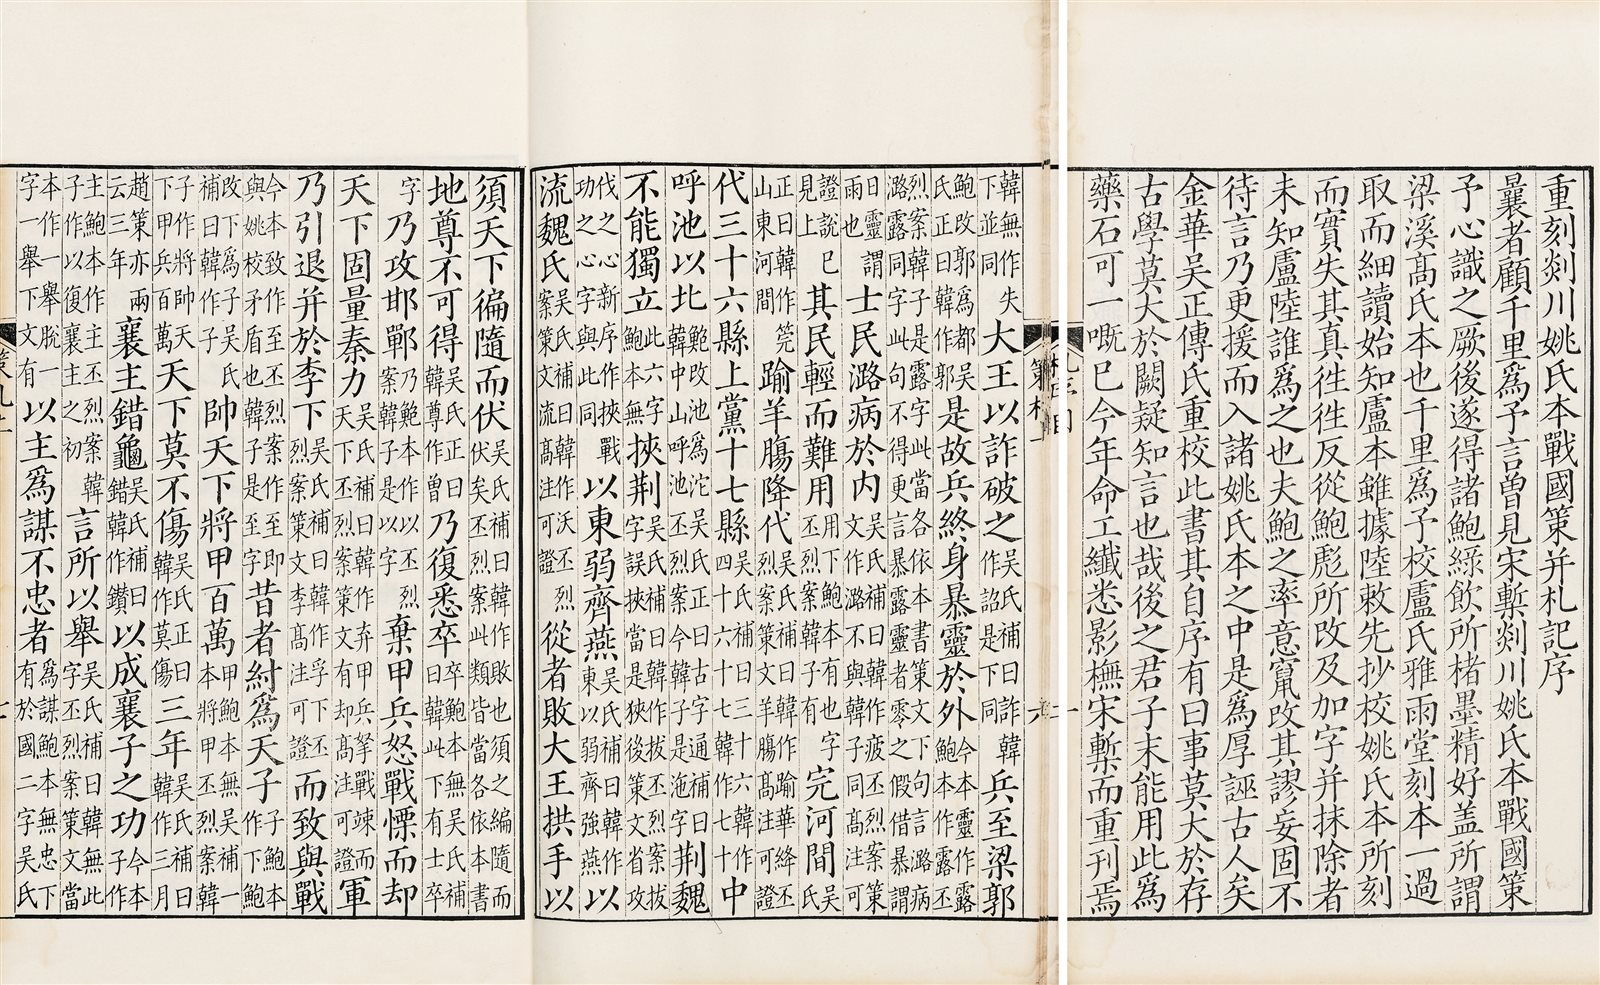 重刻剡川姚氏本戰國策并札記序
曩者顧千里爲予言曾見宋槧剡川姚氏本戰國策
予心識之厥後遂得諸鮑綠飲所楮墨精好盖所謂
梁溪髙氏本也千里爲予校盧氏雅雨堂刻本一過
取而細讀始知盧本雖據陸敕先抄校姚氏本所刻
而實失其真徃徃反從鮑彪所改及加字并抹除者
未知盧陸誰爲之也夫鮑之率意竄改其謬妄固不
待言乃更援而入諸姚氏本之中是爲厚誣古人矣
金華吳正傳氏重校此書其自序有曰事莫大於存
古學莫大於闕疑知言也哉後之君子未能用此爲
藥石可一嘅已今年命工纖悉影橅宋槧而重刊焉
一
韓無作失下並同大王以詐破之吳氏補曰詐韓作詔是下同兵至梁郭
鮑改郭爲都吳氏正曰韓作郭是故兵終身暴靈於外今本靈作露鮑本作露丕
烈案韓子是露字此當各依本書策文下句言潞病潞露同字此句不得更言暴露靈者零之假借暴謂
日靈謂雨也士民潞病於内吳氏補曰韓作疲丕烈案策文作潞不與韓子同髙注可
證說見上已其民輕而難用用下鮑本有也字丕烈案韓子有完河間吳氏
正曰韓作筦山東河間踰羊腸降代吳氏補曰韓作踰華絳丕烈案策文羊腸髙注可證
代三十六縣上黨十七縣吳氏補曰三十六韓作四十六十七韓作七十中
呼池以北鮑改池爲沱吳氏正曰古字通補曰韓中山呼池丕烈案今韓子是沲字荆魏
不能獨立此六字鮑本無挾荆吳氏補曰韓作拔丕烈案拔字誤挾當是狹後策文省攻
伐之心新序作挾戰功之心字與此同以東弱齊燕吳氏補曰韓作東以弱齊強燕以
流魏氏吳氏補曰韓作沃丕烈案策文流髙注可證從者敗大王拱手以
須天下徧隨而伏吳氏補曰韓作敗也須之編隨而伏矣丕烈案此類皆當各依本書
地尊不可得吳氏正曰韓尊作曾乃復悉卒卒鮑本無吳氏補曰韓此下有士卒
字乃攻邯鄲乃鮑本作以丕烈案韓子是以字棄甲兵怒戰慄而却
天下固量秦力吳氏補曰韓作弃甲兵拏戰竦而天下丕烈案策文有却髙注可證軍
乃引退并於李下吳氏補曰韓作孚下丕烈案策文李髙注可證而致與戰
今本致作至丕烈案作至即與姚校矛盾也韓子是至字昔者紂爲天子子鮑本作下鮑
改下爲子吳氏補曰韓作子帥天下將甲百萬甲鮑本無吳補一本將甲丕烈案韓
子作將帥天下甲兵百萬天下莫不傷吳氏正曰韓作莫傷三年吳氏補曰韓作三月
趙策亦兩云三年襄主錯龜吳氏補曰錯韓作鑽以成襄子之功今本子作
主鮑本作主丕烈案韓子作以復襄主之初言所以舉吳氏補曰韓無此字丕烈案策文當
本作一舉脫字一舉下文有以主爲謀不忠者爲謀鮑本無忠下有於國二字吳氏